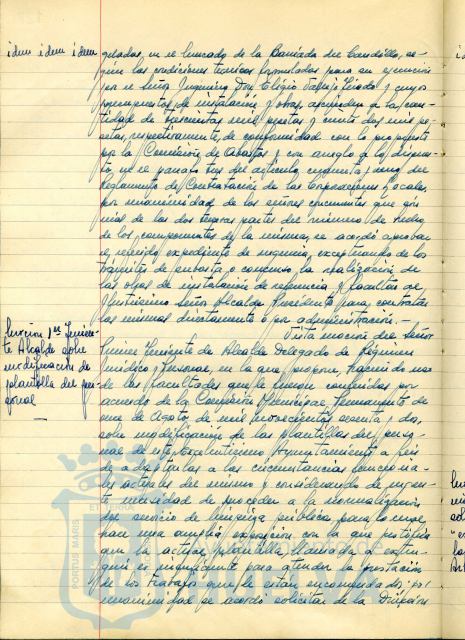 idem idem idem
geladas, en el Mercado de la Barriada del Candilla, se-
gún las condiciones técnicas formuladas para su ejecución
por el Señor Ingeniero Don Eligio Vallejo Tirado y cuyos
presupuestos de instalación y obras, ascienden a las can-
tidades de trescientas mil pesetas y ciento dos mil pe-
setas, respectivamente, de conformidad con lo propuesto
por la Comisión de Abastos y con arreglo a lo dispues-
to, en el párrafo tres del artículo cuarenta y uno del
Reglamento de Contratación de las Corporaciones Locales,
por unanimidad de los señores concurrentes que son
más de las dos terceras partes del número de hecho,
de los componentes de la misma, se acordó aprobar
el referido expediente de urgencia, exceptuando de los
trámites de subasta o concurso la realización de
las obras de instalación de referencia y facultar al
Ilustrísimo Señor Alcalde Presidente para contratar
las mismas directamente o por administración.—
Moción 1er Tenien-
te Alcalde sobre
modificación de
plantilla del per-
sonal
Vista moción del Señor
Primer Teniente de Alcalde Delegado de Régimen
Jurídico y Personal, en la que propone, haciendo uso
de las facultades que le fueron conferidas por
acuerdo de la Comisión Municipal Permanente de
once de Agosto de mil novecientos sesenta y dos,
sobre modificación de las plantillas del perso-
nal de este Excelentísimo Ayuntamiento a fin
de adaptarlas a las circunstancias
actuales del mismo y considerando de urgen-
te necesidad de proceder a la normalización
del servicio de limpieza pública, para lo cual
hace una amplia exposición con la que justifica
que la actual plantilla, llamada a extin-
guir es insuficiente para atender la prestación
de los trabajos que le están encomendados: por
unanimidad se acordó solicitar de la Dirección
PORTUS MARIS ET TERRAE
HUELVA